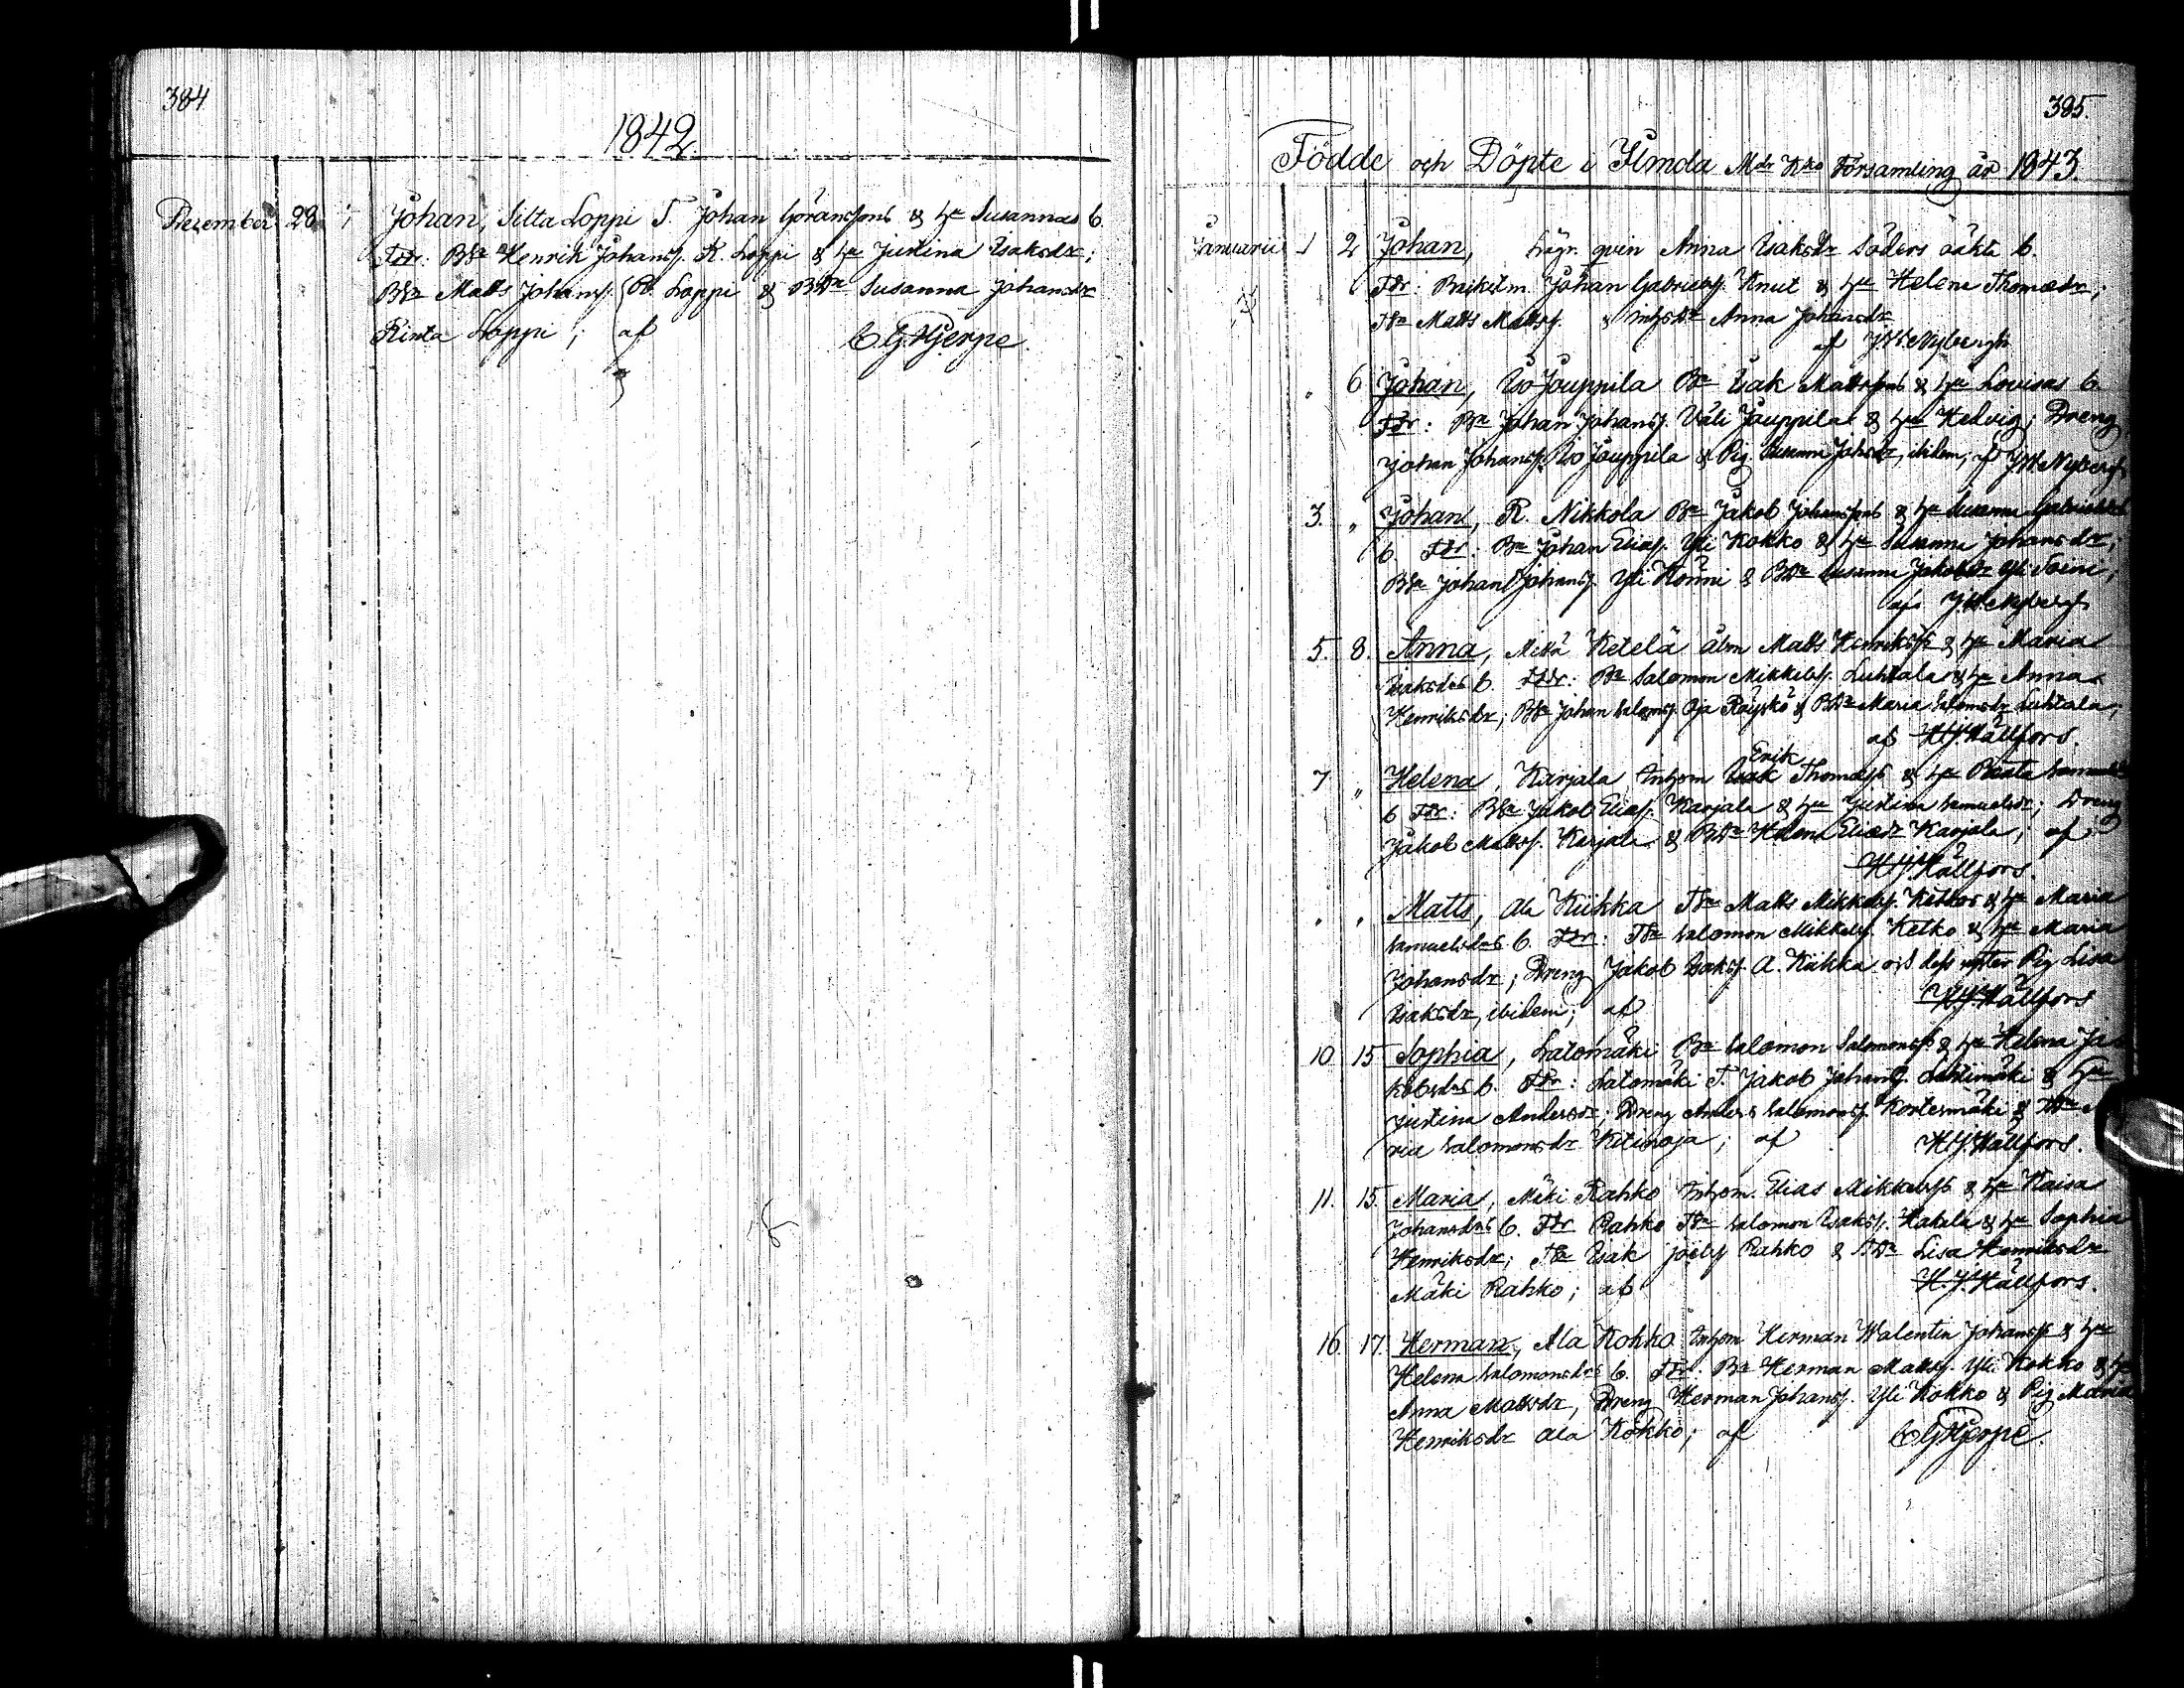 384
1842.
December 28. Johan, Silta Loppi T. Johan Göranssons & hu Susannas b.
Fdr: BSn Henrik Johanss. K. Loppi & hu Justina Isaksdr;
BSn Matts Johanss. Loppi & BDr Susanna Johansdr
Rinta Loppi; af C G Hjerpe.
385.
Födde och Döpte i Ilmola Mdr Kko Församling år 1843.
Januarii 1 2 Johan, qvin Anna Isaksdr Söders oäkta b.
Fdr: Johan Gabrielss. Knut & hu Helena Thomædr;
TSn Matts Mattss. & Anna Johansdr
af Nybergh
" 6 Johan, Iso Jouppila Bn Isak Mattssons & hu Lovisas b.
Fdr: Bn Johan Johanss. Väli Jouppila & hu Hedvig; Dreng
Johan Johanss. Iso Jouppila & Pig. Susanna Johsdr, ibidem; af Nybergh
3. " Johan, R. Nikkola Bn Jakob Johanssons & hu Susanna
b. Fdr: Bn Johan Eliass. Yli Kokko & hu Susanna Johansdr;
BSn Johan Johanss. Yli Könni & BDr Susanna Jakobsdr Yli
af Nybergh
5. 8. Anna, Ketelä Matts Henrikss & hu Maria
Isaksdrs b. Fdr: Bn Salomon Mikkelss. Luhtala & hu Anna
Henriksdr; BSn Johan Saloms. Oja Räyskö & BDr Maria Salomsdr Luhtala;
af H J Hällfors.
Erik
7. " Helena, Karjala Inhom Isak Thomæss & hu Beata
b Fdr: BSn Jakob Eliass. Karjala & hu Justina Samuelsdr; Dreng
Jakob Mattss. Karjala & BDr Helena Eliædr Karjala; af
H J Hällfors.
" " Matts, Ala Kiikka TSn Matts Mikkelss. Ketkos & hu Maria
Samuelsdrs b. Fdr: TSn Salomon Mikkelss. Ketko & hu Maria
Johansdr; Dreng Jakob Isakss. A. Kiikka och dess syster Pig Lisa
Isaksdr, ibidem; af H J Hällfors
10. 15 Sophia, Latomäki Bn Salomon Salomonss & hu Helena Ja-
kobsdrs b. Fdr: Latomäki T. Jakob Johanss. & hu
Justina Andersdr; Dreng Anders Salomonss. Kortesmäki &
ria Salomonsdr Kitinoja; af H J Hällfors.
11. 15. Maria, Mäki Rahko Inhom. Elias Mikkelss & hu Kaisa
Johansdrs b. Fdr Rahko TSn Salomon Isakss. Hakala & hu Sophia
Henriksdr; TSn Isak Rahko & TDr Lisa Henriksdr
Mäki Rahko; af H. J. Hällfors.
16. 17. Herman, Ala Kokko Inhom Herman Walentin Johanss & hu
Helena Salomonsdrs b. Fdr: Bn Herman Mattss. Yli Kokko & hu
Anna Mattsdr, Dreng Herman Johanss. Yli Kokko & Pig Maria
Henriksdr Ala Kokko; af C G Hjerpe.